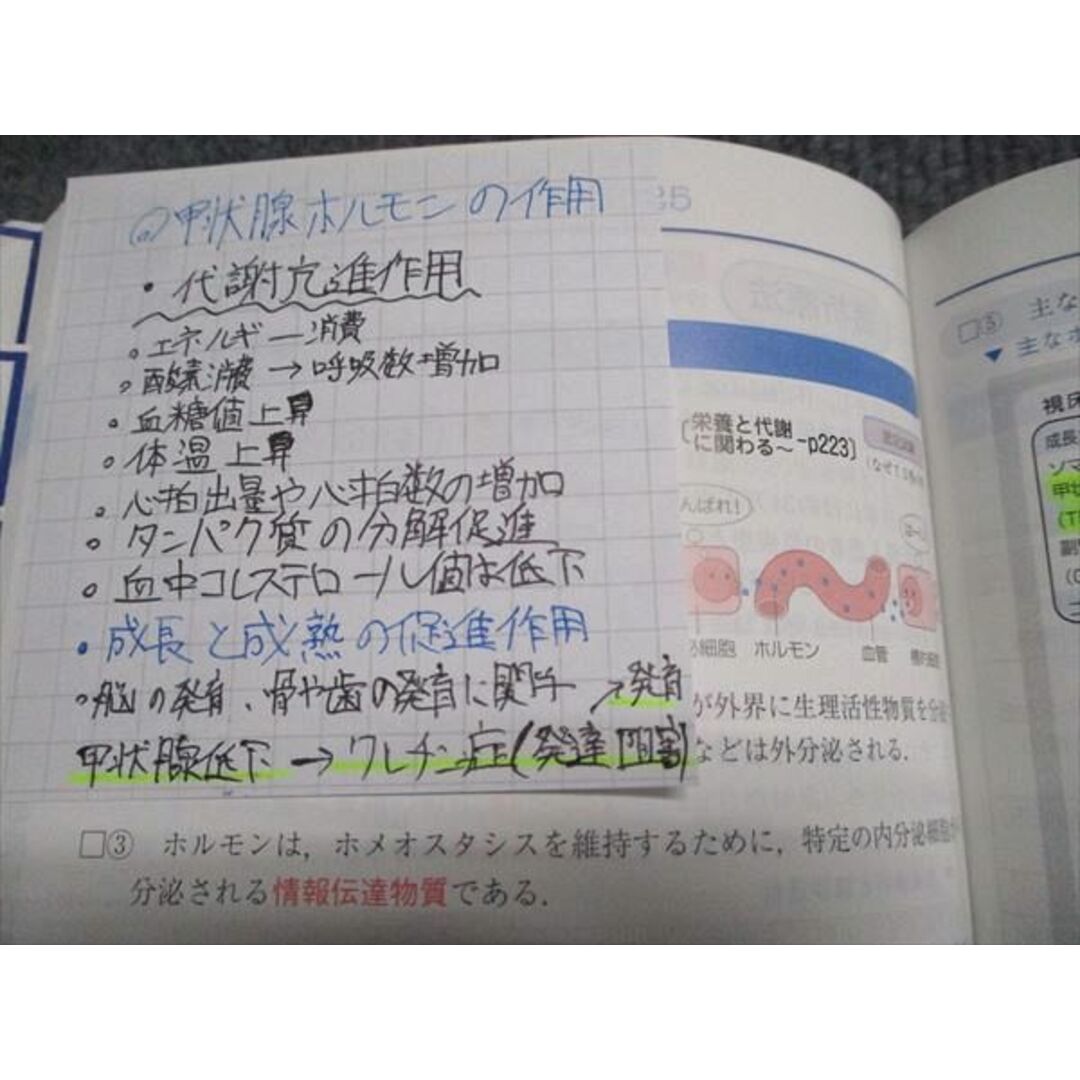 ◎甲状腺ホルモンの作用
・代謝亢進作用
。エネルギー消費
。酸素消費→呼吸数増加
。血糖値上昇
。体温上昇
。心拍出量や心拍数の増加
。タンパク質の分解促進
。血中コレステロール値は低下
・成長と成熟の促進作用
。脳の発育、骨や歯の発育に関与 ↗発育
甲状腺低下→クレチン症(発達阻害)
[栄養と代謝に関わる〜-p223]
んばれ!
細胞 ホルモン 血管
が外界に生理活性物質を分
などは外分泌される.
□③ ホルモンは,ホメオスタシスを維持するために,特定の内分泌細胞
分泌される情報伝達物質である.
□⑤ 主な
▼ 主なホ
視床
成長
ソマ
甲状
(T
副